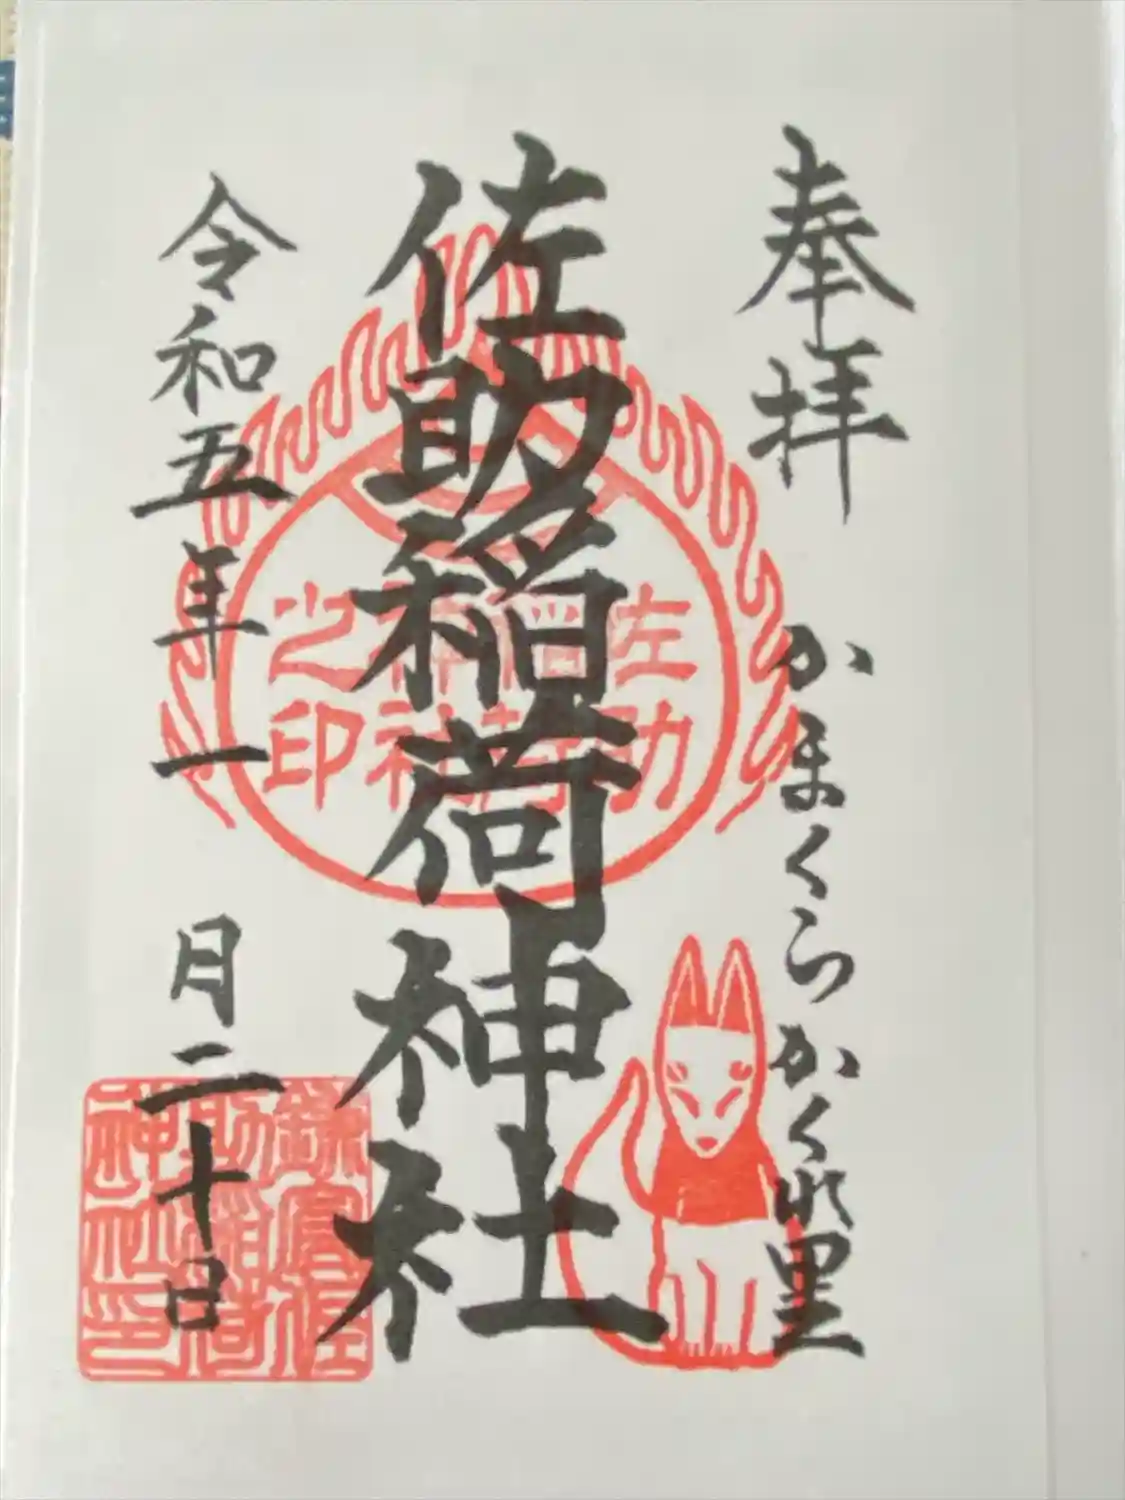 奉拝
かまくらかくれ里
佐助稲荷神社
佐助稲荷神社之印
令和五年一月二十日
鎌倉佐助稲荷神社印